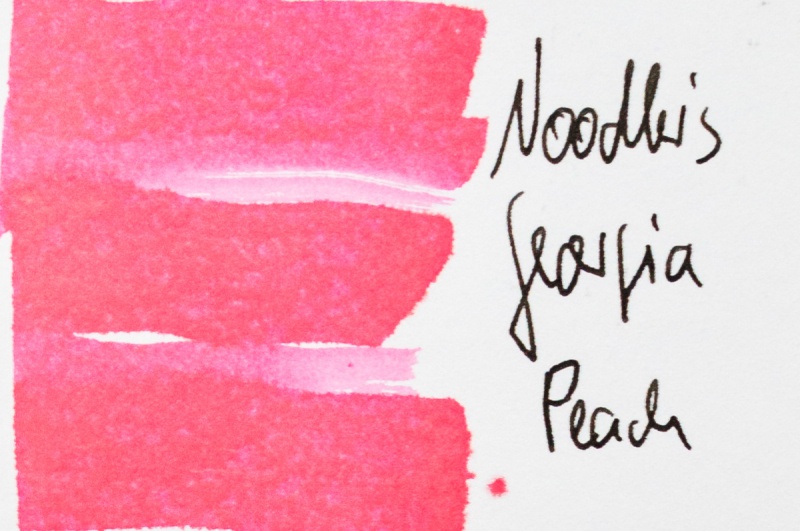 Noodler's
Georgia
Peach